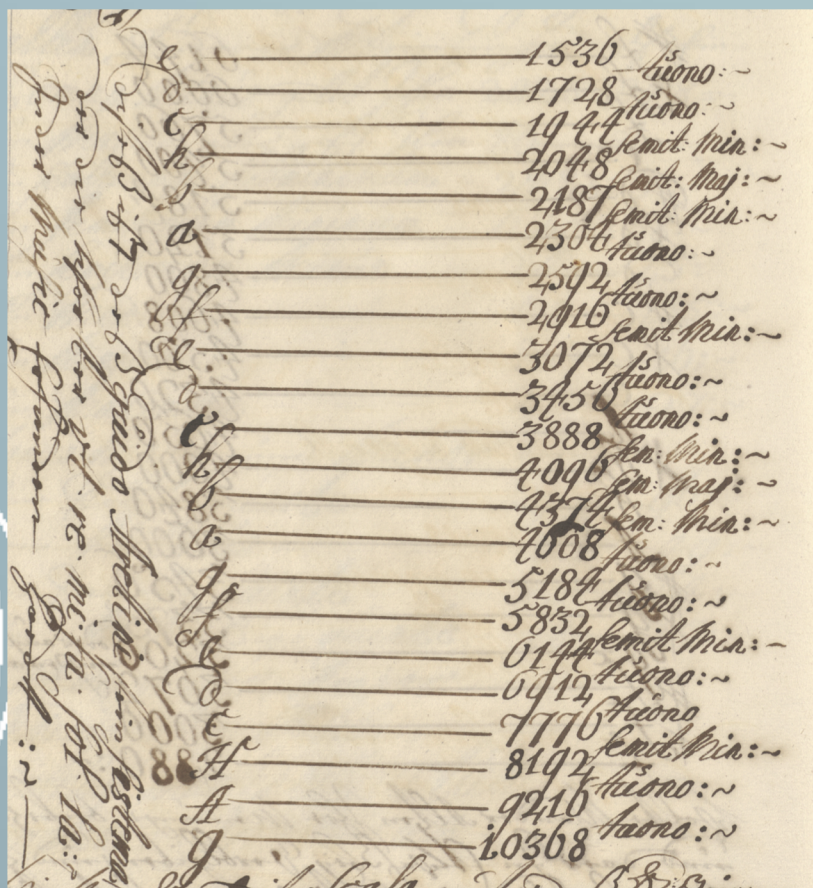 e 1536 tuono:~
d 1728 tuono:~
c 1944 semit: Min:~
h 2048 semit: Maj:~
b 2187 semit: Min:~
a 2304 tuono:~
g 2592 tuono:~
f 2916 semit Min:~
e 3072 tuono:~
d 3456 tuono:~
c 3888 sem: Min:~
h 4096 sem: Maj:~
b 4374 sem: Min:~
a 4608 tuono:~
g 5184 tuono:~
f 5832 semit Min:~
e 6144 tuono:~
d 6912 tuono
c 7776 semit Min:~
H 8192 tuono:~
A 9216 tuono:~
g 10368
Guido Aretini sein sistema
ut re mi fa sol la:
Music